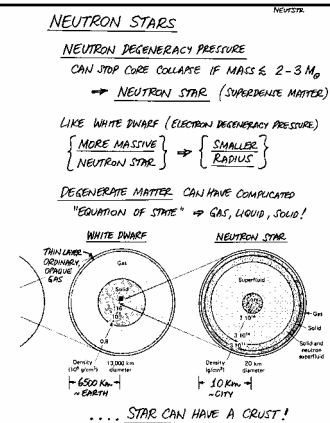 NEUTSTR
NEUTRON STARS
NEUTRON DEGENERACY PRESSURE
CAN STOP CORE COLLAPSE IF MASS ≲ 2-3 M⊙
→ NEUTRON STAR (SUPERDENSE MATTER)
LIKE WHITE DWARF (ELECTRON DEGENERACY PRESSURE)
{MORE MASSIVE NEUTRON STAR} ⇒ {SMALLER RADIUS}
DEGENERATE MATTER CAN HAVE COMPLICATED
"EQUATION OF STATE" ⇒ GAS, LIQUID, SOLID!
WHITE DWARF
NEUTRON STAR
THIN LAYER
ORDINARY,
OPAQUE
GAS
Gas
Solid
0.8
Density
(10⁶ g/cm³)
13,000 km
diameter
Superfluid
Gas
Solid
Solid and
neutron
superfluid
Density
(g/cm³)
20 km
diameter
6500 Km
~EARTH
10 Km
~CITY
.... STAR CAN HAVE A CRUST!